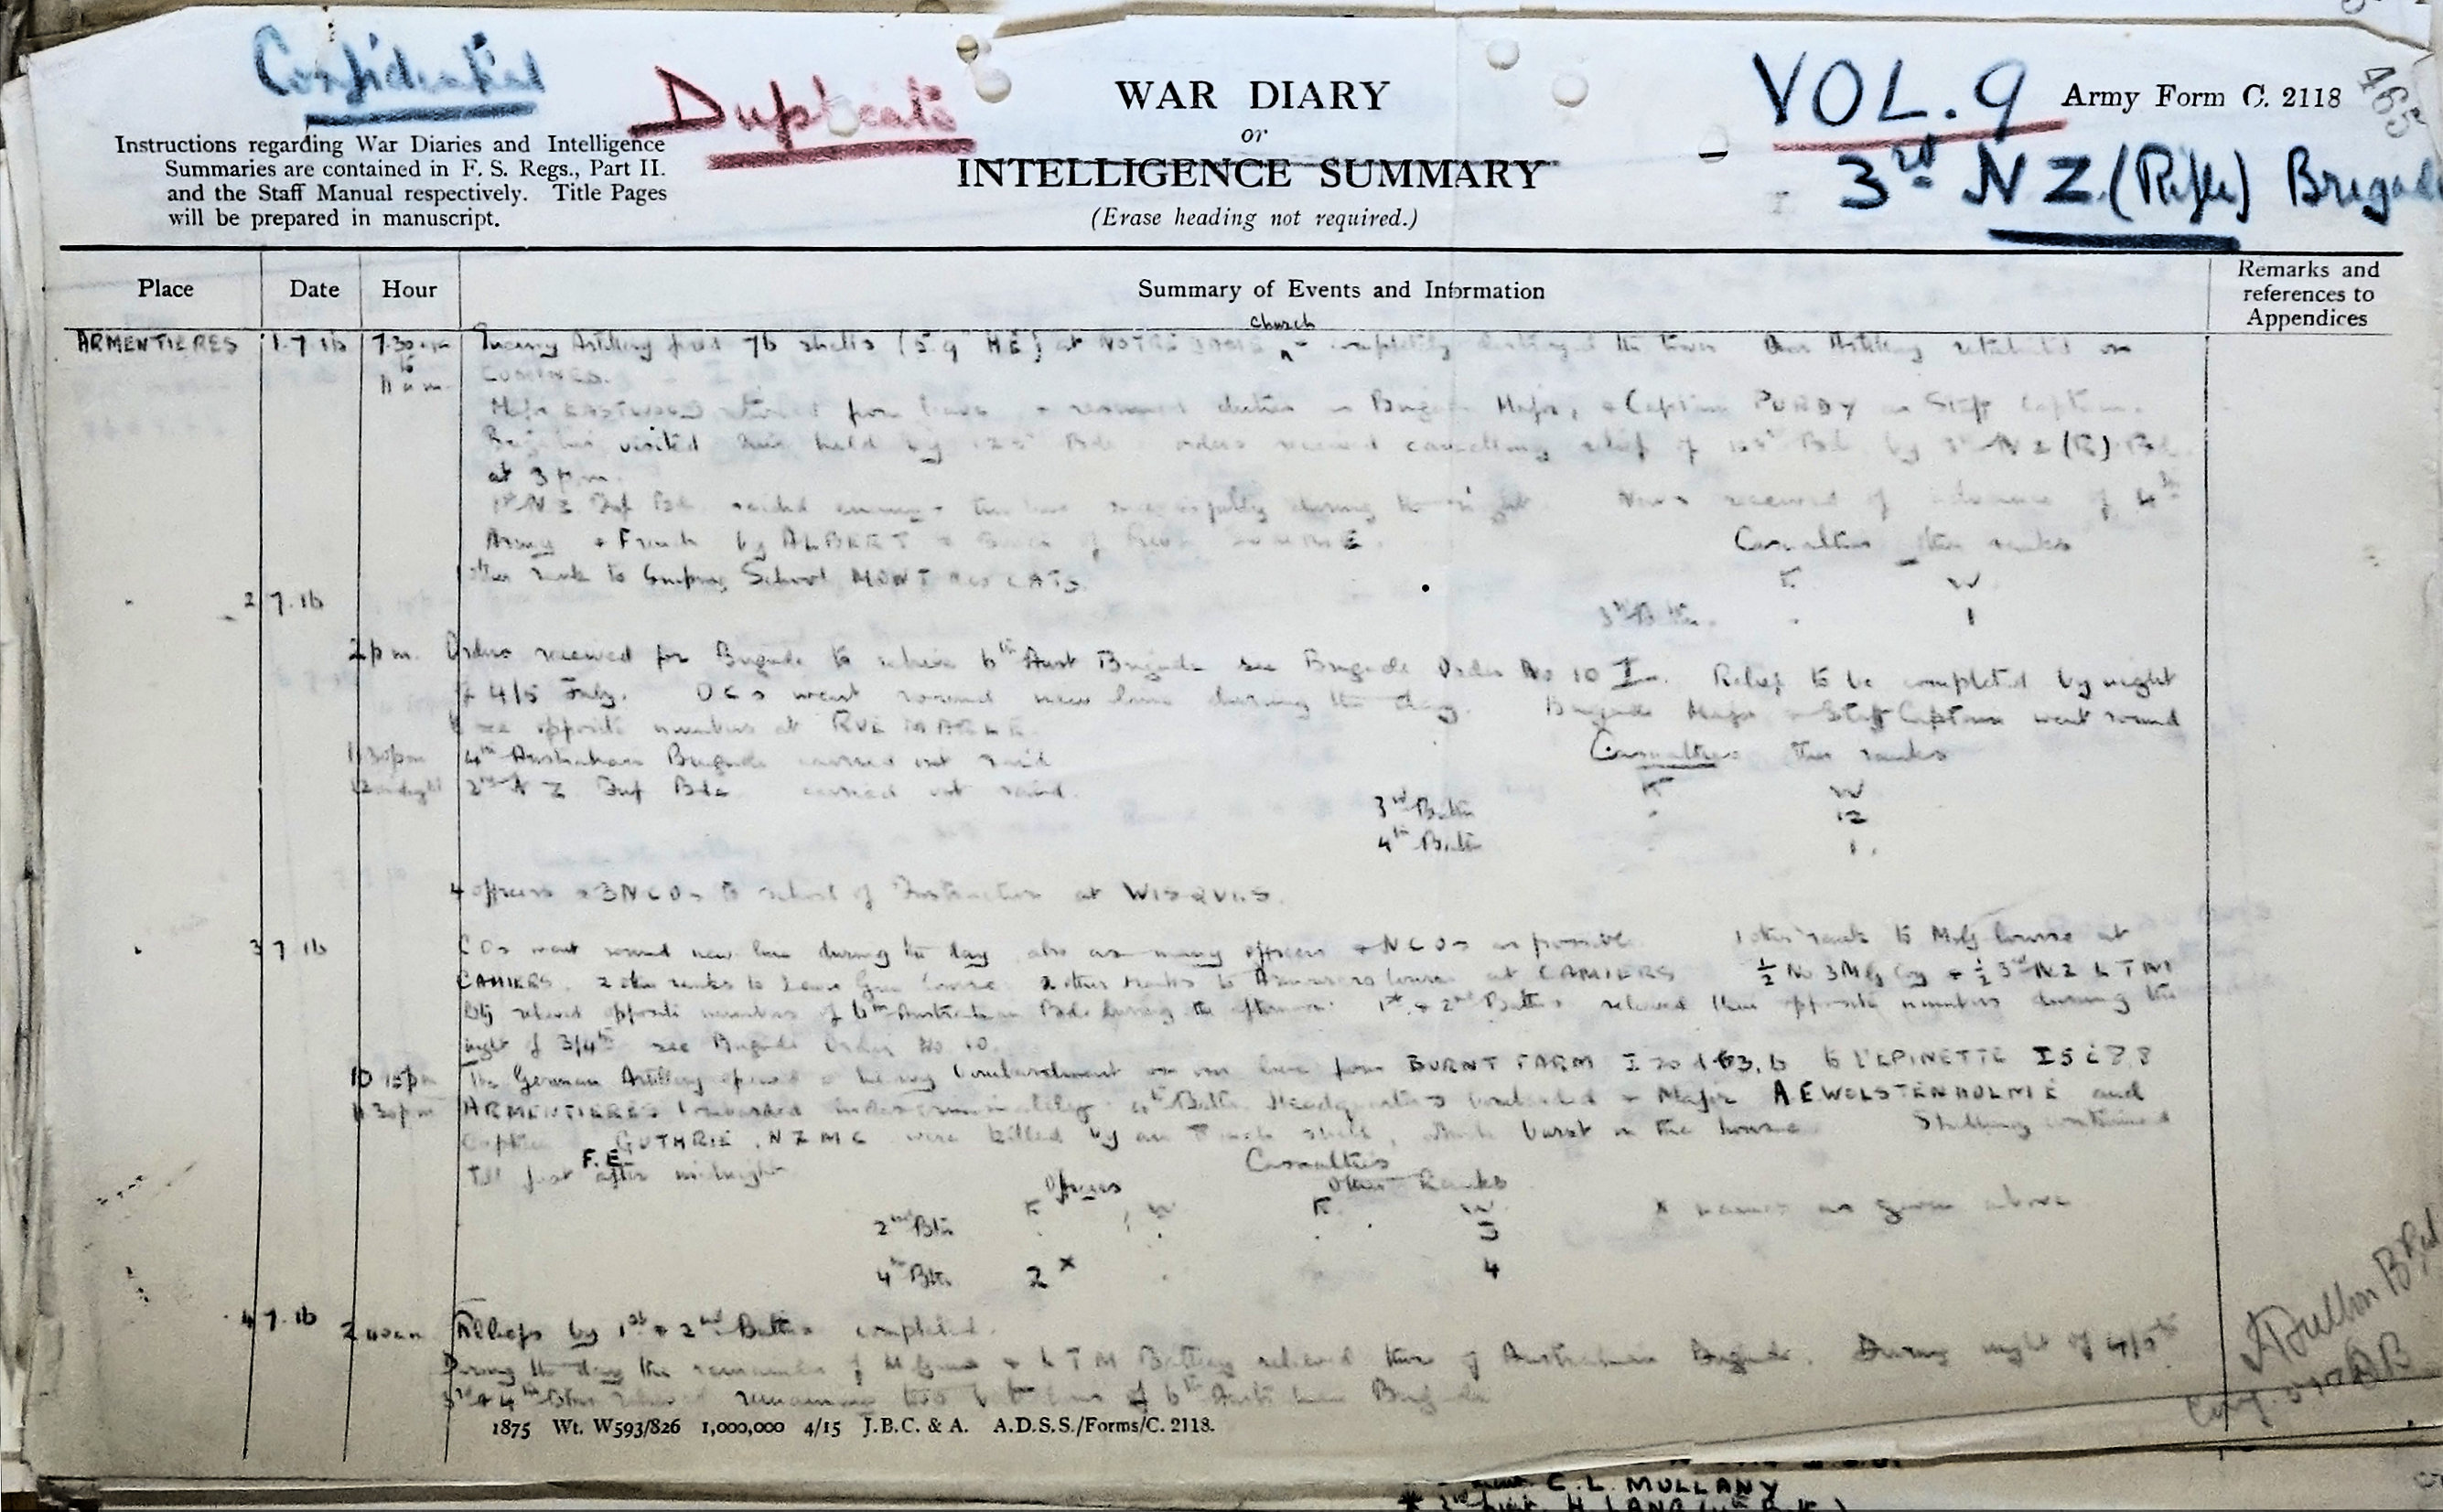 Confidential
Duplicate
WAR DIARY
or
INTELLIGENCE SUMMARY
(Erase heading not required.)
VOL. 9
Army Form C. 2118
465
3rd N Z. (Rifle) Brigade
Instructions regarding War Diaries and Intelligence
Summaries are contained in F. S. Regs., Part II.
and the Staff Manual respectively. Title Pages
will be prepared in manuscript.
Place Date Hour Summary of Events and Information Remarks and references to Appendices
ARMENTIERES 1.7.16 7.30 am to 11 am Enemy Artillery fired 76 shells (5.9 HE) at NOTRE DAME church - completely destroyed the tower Our Artillery retaliated on
COMINES.
Major EASTWOOD returned from leave & resumed duties as Brigade Major, & Captain PURDY as Staff Captain.
Brigadier visited line held by Bde orders received cancelling relief of Bde by 3rd N Z (R) Bde
at 3 p.m.
1st N Z Inf Bde raided enemy successfully during the night. News received of advance of 4th
Army & French by ALBERT & of River SOMME.
Casualties other ranks
1 other rank to School MONT des CATS.
K W
2 7.16
3rd Bttn. . 1
2 p m. Orders received for Brigade to relieve 6th Aust Brigade see Brigade Order No 10 Relief to be completed by night
of 4/5 July. OCs went round new line during the day. Brigade Major & Staff Captain went round
to see opposite numbers at RUE MARLE.
11 30pm 4th Australian Brigade carried out raid
Casualties other ranks
12 midnight 2nd N Z Inf Bde carried out raid.
K W
3rd Battn . 12
4th Battn 1.
4 officers & 3 NCOs to school of Instruction at WISQUES.
3 7 16 COs went round new line during the day also as many officers & NCOs as possible 1 other rank to MG Course at
CAMIERS. 2 other ranks to Lewis Gun Course 2 other ranks to Armourers Course at CAMIERS ½ No 3 MG Coy & ½ 3rd NZ L TM
Bty relieved opposite numbers of 6th Australian Bde during the afternoon. 1st & 2nd Battns relieved their opposite numbers during the
night of 3/4th see Brigade Order No 10.
10 15pm The German Artillery opened a heavy bombardment on our line from BURNT FARM to L'EPINETTE
11 30pm ARMENTIERES bombarded indiscriminately. 4th Battn Headquarters bombarded & Major A E WOLSTENHOLME and
Captain F.E. GUTHRIE, NZMC were killed by an shell, which burst in the house Shelling continued
till just after midnight
Casualties
Officers Other Ranks
K W K W
x names as given above
2nd Btn . . . 3
4th Btn 2 x . 4
4 7.16 2 40am Reliefs by 1st & 2nd Battns completed.
During the day the remainder of M Guns & L T M Battery relieved those of Australian Brigade. During night of 4/5th
3rd & 4th Btns relieved remaining two of 6th Australian Brigade
1875 Wt. W593/826 1,000,000 4/15 J.B.C. & A. A.D.S.S./Forms/C. 2118.
C. L. MULLANY